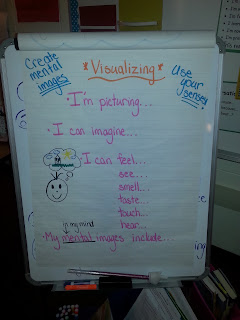 Create
mental
images
*Visualizing*
Use
your
senses
• I'm picturing...
• I can imagine...
• I can feel...
see...
smell...
taste...
touch...
hear...
in my mind
• My mental images include...